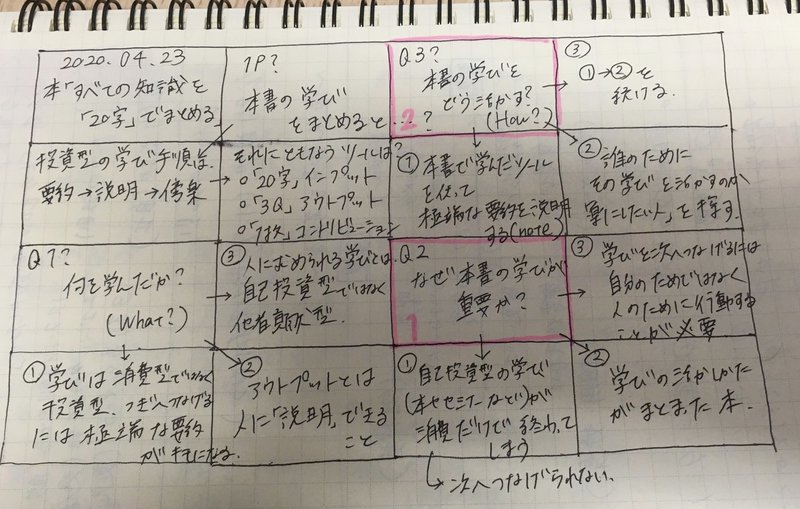 2020.04.23
本「すべての知識を
「20字」でまとめる
1P?
本書の学び
をまとめると…?
Q3?
本書の学びを
どう活かす?
(How?)
2
③
①→②を
続ける.
投資型の学び手順は、
要約→説明→傍楽
それにともなうツールは?
○「20字」インプット
○「3Q」アウトプット
○「1枚」コントリビューション
①本書で学んだツール
を使って
極端な要約を説明
する(note)
②誰のために
その学びを活かすのか
「楽にしたい人」を探す.
Q1?
何を学んだか?
(What?)
③人に求められる学びとは、
自己投資型ではなく
他者貢献型.
Q2
なぜ本書の学びが
重要か?
1
③
学びを次へつなげるには
自分のためではなく
人のために行動する
ことが必要
①学びは消費型ではなく
投資型、つぎへつなげる
には極端な要約
がキーになる.
②
アウトプットとは
人に「説明」できる
こと
①
自己投資型の学び
(本やセミナーなど)が
消費だけで終わって
しまう
↳次へつなげられない.
②
学びの活かしかた
がまとまった本.